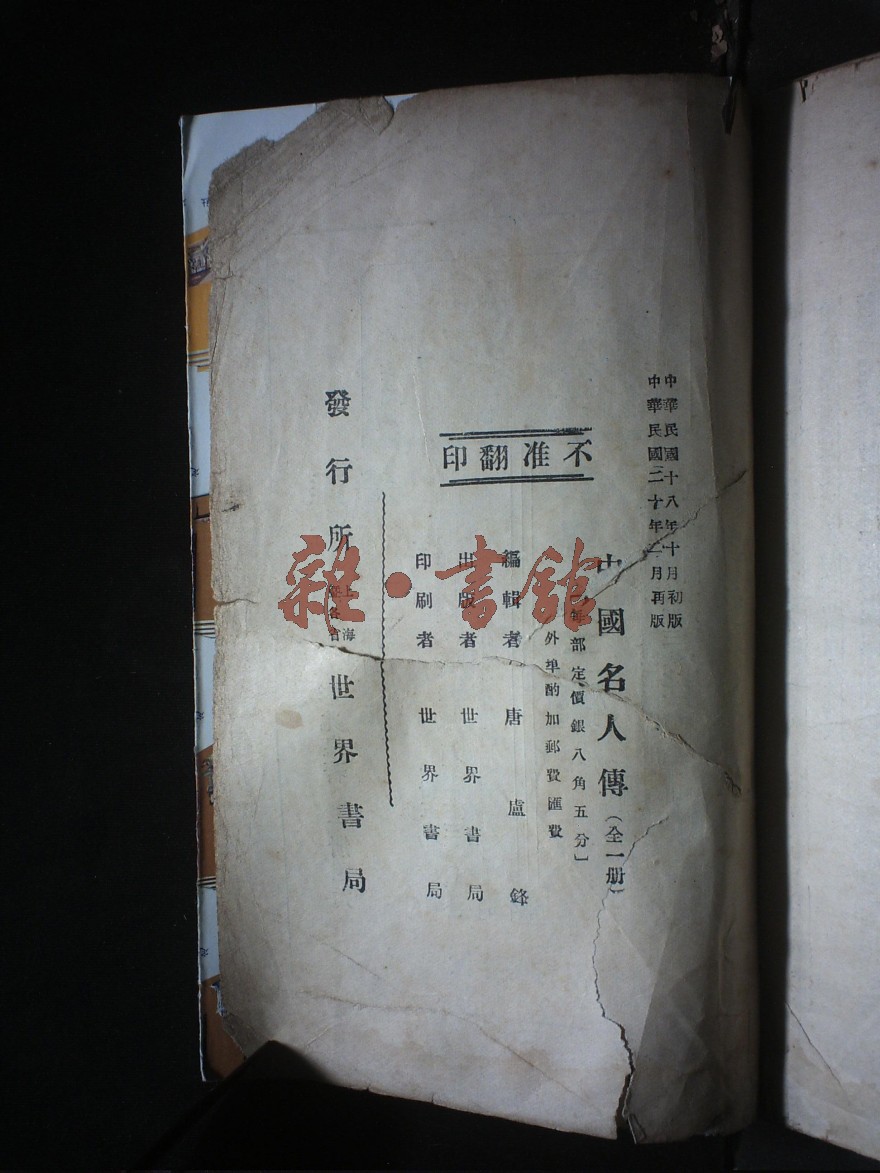 中華民國十八年十月初版
中華民國二十年二月再版
中國名人傳（全一册）
每部定價銀八角五分
外埠酌加郵費匯費
不准翻印
編輯者 唐盧鋒
出版者 世界書局
印刷者 世界書局
發行所 上海 世界書局
雜·書館